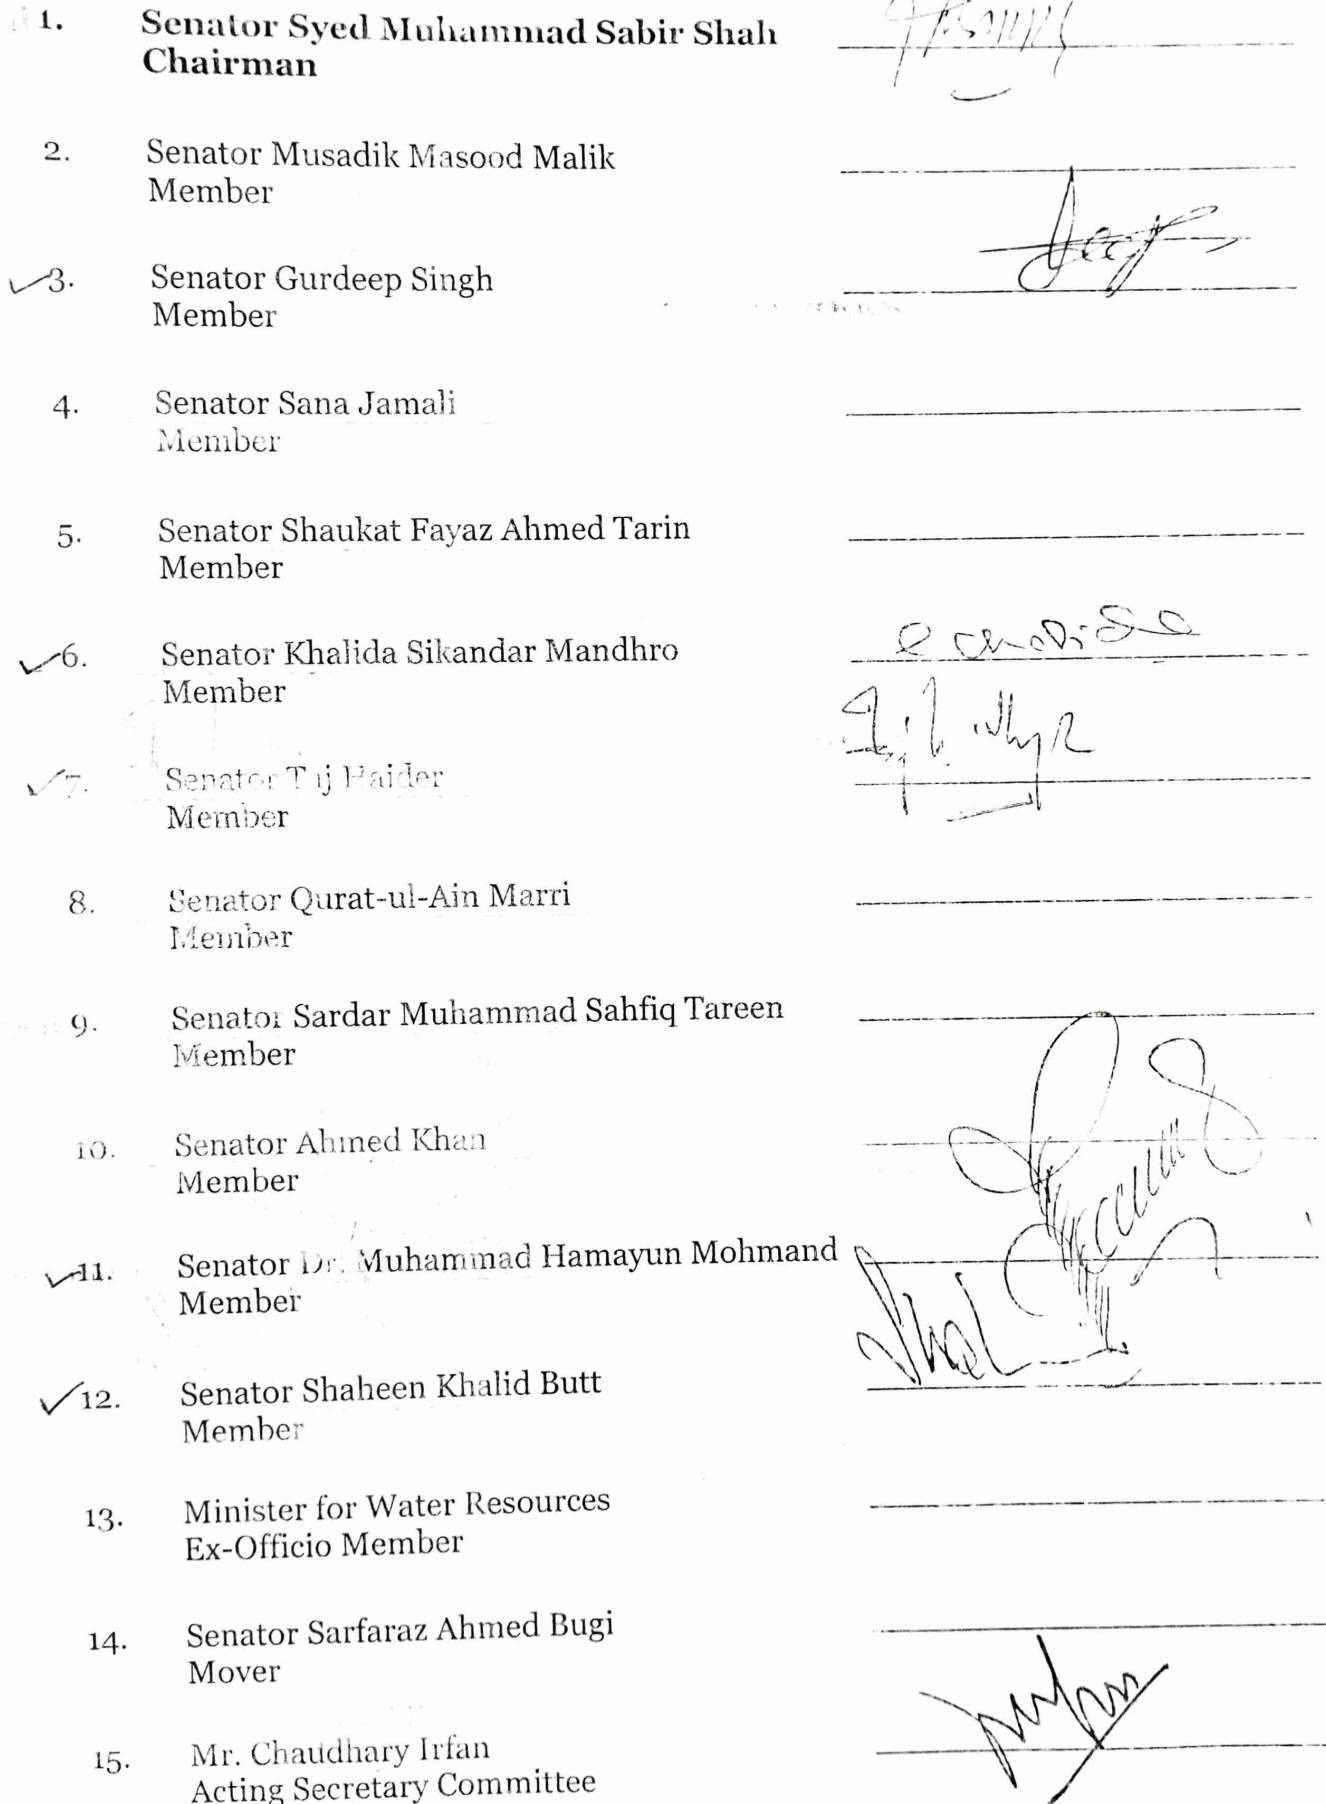 1. Senator Syed Muhammad Sabir Shah
Chairman
2. Senator Musadik Masood Malik
Member
3. Senator Gurdeep Singh
Member
4. Senator Sana Jamali
Member
5. Senator Shaukat Fayaz Ahmed Tarin
Member
6. Senator Khalida Sikandar Mandhro
Member
7. Senator Taj Haider
Member
8. Senator Qurat-ul-Ain Marri
Member
9. Senator Sardar Muhammad Sahfiq Tareen
Member
10. Senator Ahmed Khan
Member
11. Senator Dr. Muhammad Hamayun Mohmand
Member
12. Senator Shaheen Khalid Butt
Member
13. Minister for Water Resources
Ex-Officio Member
14. Senator Sarfaraz Ahmed Bugi
Mover
15. Mr. Chaudhary Irfan
Acting Secretary Committee